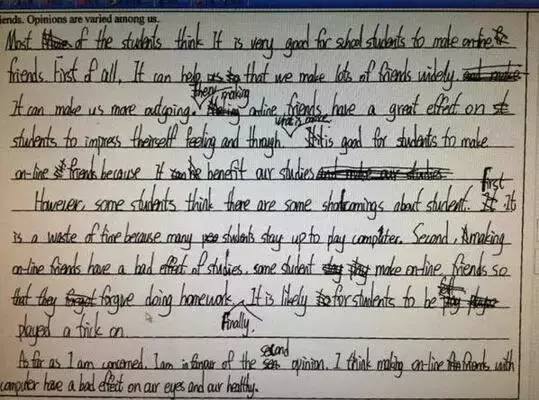 iends. Opinions are varied among us.
Most of the students think It is very good for school students to make on-line
friends. First of all, It can help us that we make lots of friends widely.
It can make us more outgoing. then, making on-line friends have a great effect on
students to impress theirself feeling and through. what is more It is good for students to make
on-line friends because It benefit our studies
However, some students think there are some shortcomings about student. First It
is a waste of time because many students stay up to play computer. Second, making
on-line friends have a bad effect of studies. some student make on-line friends so
that they forgive doing homework. Finally. It is likely for students to be
played a trick on.
As far as I am concerned, I am in favour of the second opinion. I think making on-line friends with
computer have a bad effect on our eyes and our healthy.